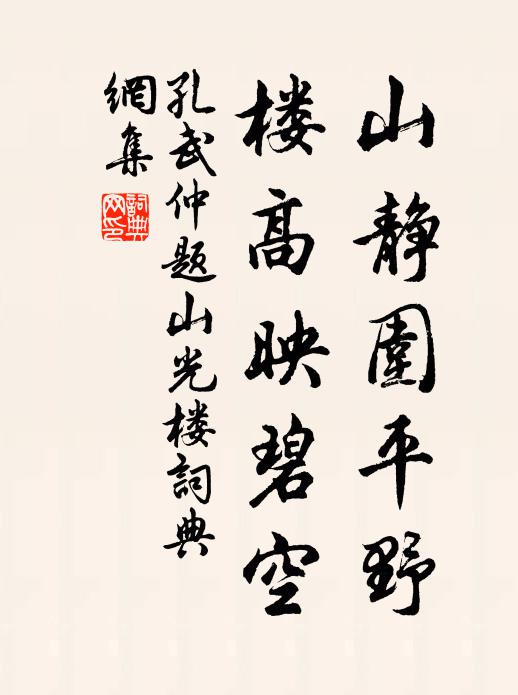 山静圍平野
楼高映碧空
孔武仲题山光楼詞典
網集
詞典
网印